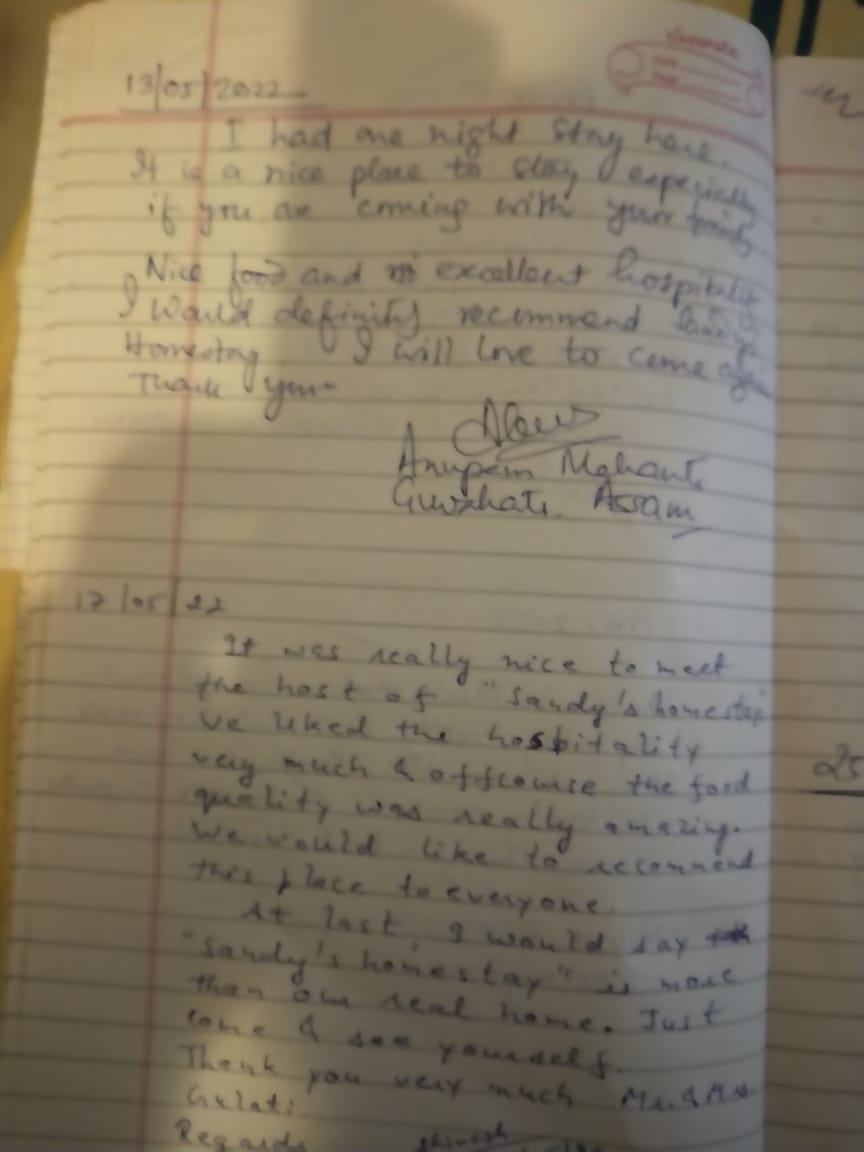 classmate
13/05/2022
I had one night stay here.
It is a nice place to stay especially
if you are coming with your family
Nice food and excellent hospitality
I would definitly recommend Sandy's
Homestay I will love to come again
Thank you
Anupam Mahanti
Guwahati, Assam
17/05/22
It was really nice to meet
the host of "Sandy's homestay"
we liked the hospitality
very much & offcourse the food
quality was really amazing.
We would like to recommend
this place to everyone.
At last, I would say
"Sandy's homestay" is more
than our real home. Just
come & see yourself.
Thank you very much Mr. & Mrs.
Gulati.
Regards
25